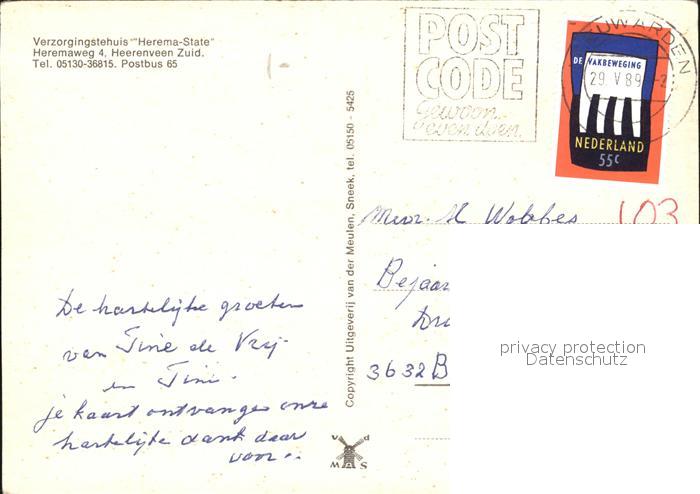 Verzorgingstehuis "Herema-State"
Heremaweg 4, Heerenveen Zuid.
Tel. 05130-36815. Postbus 65
POST
CODE
Gewoon
even doen.
UWARDEN
29 V 89
DE VAKBEWEGING
NEDERLAND
55c
Copyright Uitgeverij van der Meulen, Sneek, tel. 05150 - 5425
Mevr. H Wobbes
103
Bejaar
3632 B
privacy protection
Datenschutz
De hartelijke groeten
van Tine de Vrij
en Tini.
je kaart ontvangen onze
hartelijke dank daar
voor..
v d
M S